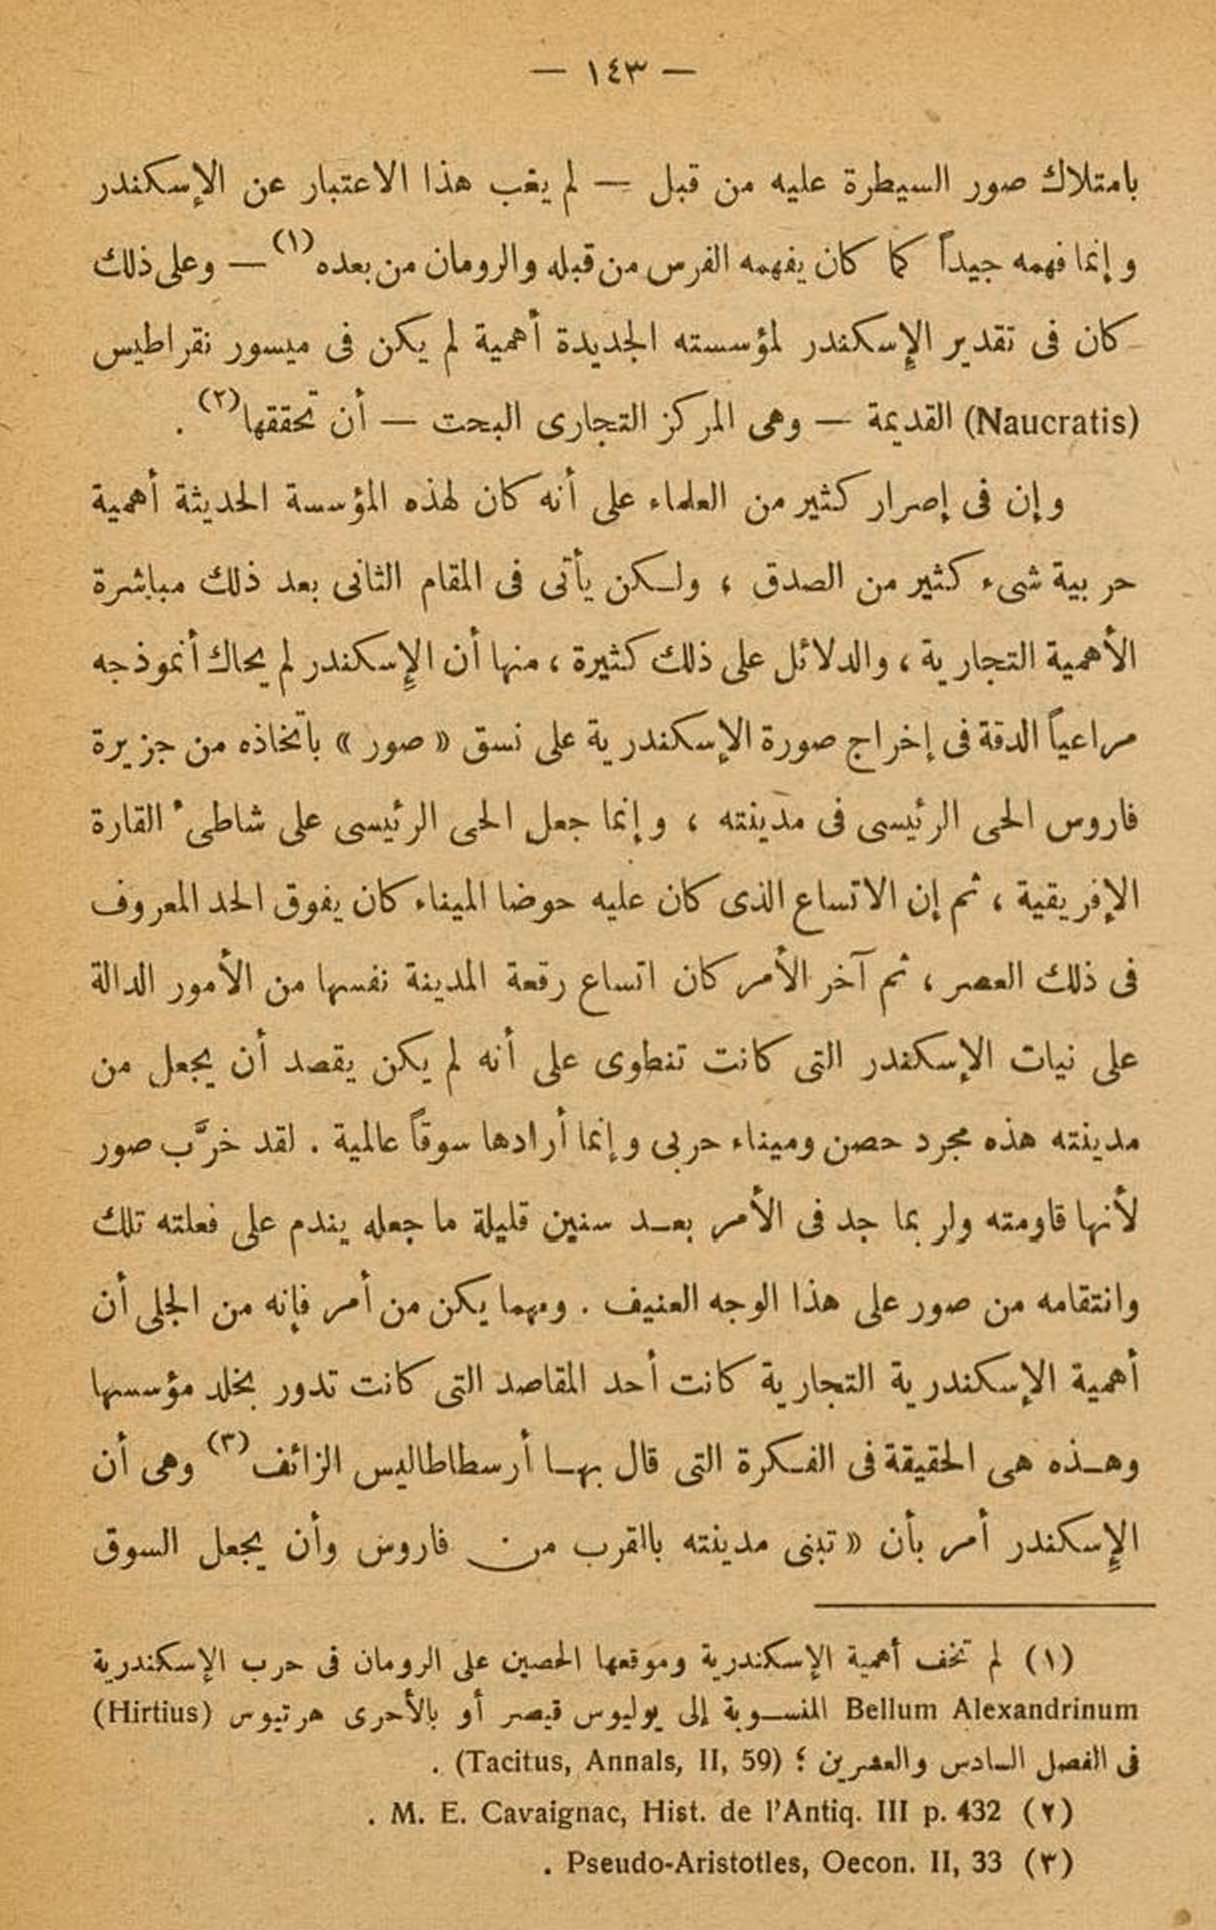 — ١٤٣ —
بامتلاك صور السيطرة عليه من قبل — لم يغب هذا الاعتبار عن الإسكندر
وإنما فهمه جيداً كما كان يفهمه الفرس من قبله والرومان من بعده(١) — وعلى ذلك
كان فى تقدير الإسكندر لمؤسسته الجديدة أهمية لم يكن فى ميسور نقراطيس
(Naucratis) القديمة — وهى المركز التجارى البحت — أن تحققها(٢) .
وإن فى إصرار كثير من العلماء على أنه كان لهذه المؤسسة الحديثة أهمية
حربية شىء كثير من الصدق ، ولكن يأتى فى المقام الثانى بعد ذلك مباشرة
الأهمية التجارية ، والدلائل على ذلك كثيرة ، منها أن الإسكندر لم يحاك أنموذجه
مراعياً الدقة فى إخراج صورة الإسكندرية على نسق « صور » باتخاذه من جزيرة
فاروس الحى الرئيسى فى مدينته ، وإنما جعل الحى الرئيسى على شاطىء القارة
الإفريقية ، ثم إن الاتساع الذى كان عليه حوضا الميناء كان يفوق الحد المعروف
فى ذلك العصر ، ثم آخر الأمر كان اتساع رقعة المدينة نفسها من الأمور الدالة
على نيات الإسكندر التى كانت تنطوى على أنه لم يكن يقصد أن يجعل من
مدينته هذه مجرد حصن وميناء حربى وإنما أرادها سوقاً عالمية . لقد خرَّب صور
لأنها قاومته ولربما جد فى الأمر بعد سنين قليلة ما جعله يندم على فعلته تلك
وانتقامه من صور على هذا الوجه العنيف . ومهما يكن من أمر فإنه من الجلى أن
أهمية الإسكندرية التجارية كانت أحد المقاصد التى كانت تدور بخلد مؤسسها
وهذه هى الحقيقة فى الفكرة التى قال بها أرسطاطاليس الزائف(٣) وهى أن
الإسكندر أمر بأن « تبنى مدينته بالقرب من فاروس وأن يجعل السوق
(١) لم تخف أهمية الإسكندرية وموقعها الحصين على الرومان فى حرب الإسكندرية
Bellum Alexandrinum المنسوبة إلى يوليوس قيصر أو بالأحرى هرتيوس (Hirtius)
فى الفصل السادس والعشرين ؛ (Tacitus, Annals, II, 59) .
(٢) M. E. Cavaignac, Hist. de l'Antiq. III p. 432 .
(٣) Pseudo-Aristotles, Oecon. II, 33 .